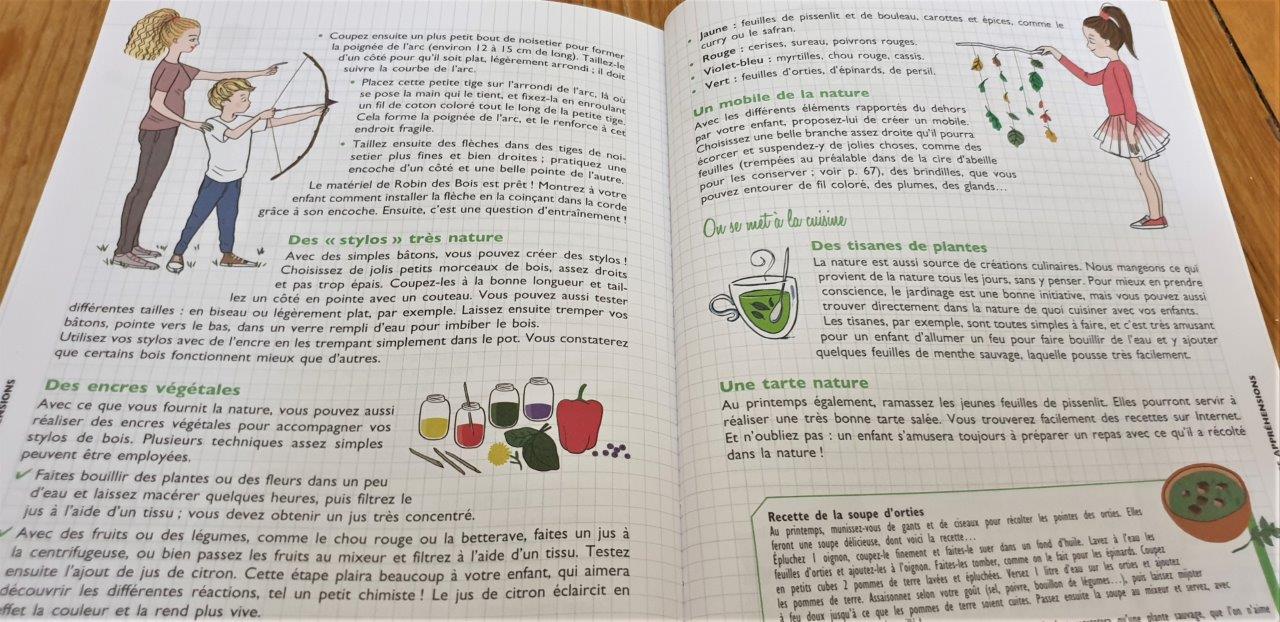 • Coupez ensuite un plus petit bout de noisetier pour former
la poignée de l'arc (environ 12 à 15 cm de long). Taillez-le
d'un côté pour qu'il soit plat, légèrement arrondi ; il doit
suivre la courbe de l'arc.
• Placez cette petite tige sur l'arrondi de l'arc, là où
se pose la main qui le tient, et fixez-la en enroulant
un fil de coton coloré tout le long de la petite tige.
Cela forme la poignée de l'arc, et le renforce à cet
endroit fragile.
• Taillez ensuite des flèches dans des tiges de noi-
setier plus fines et bien droites ; pratiquez une
encoche d'un côté et une belle pointe de l'autre.
Le matériel de Robin des Bois est prêt ! Montrez à votre
enfant comment installer la flèche en la coinçant dans la corde
grâce à son encoche. Ensuite, c'est une question d'entraînement !
Des « stylos » très nature
Avec des simples bâtons, vous pouvez créer des stylos !
Choisissez de jolis petits morceaux de bois, assez droits
et pas trop épais. Coupez-les à la bonne longueur et tail-
lez un côté en pointe avec un couteau. Vous pouvez aussi tester
différentes tailles : en biseau ou légèrement plat, par exemple. Laissez ensuite tremper vos
bâtons, pointe vers le bas, dans un verre rempli d'eau pour imbiber le bois.
Utilisez vos stylos avec de l'encre en les trempant simplement dans le pot. Vous constaterez
que certains bois fonctionnent mieux que d'autres.
Des encres végétales
Avec ce que vous fournit la nature, vous pouvez aussi
réaliser des encres végétales pour accompagner vos
stylos de bois. Plusieurs techniques assez simples
peuvent être employées.
✓ Faites bouillir des plantes ou des fleurs dans un peu
d'eau et laissez macérer quelques heures, puis filtrez le
jus à l'aide d'un tissu ; vous devez obtenir un jus très concentré.
✓ Avec des fruits ou des légumes, comme le chou rouge ou la betterave, faites un jus à
la centrifugeuse, ou bien passez les fruits au mixeur et filtrez à l'aide d'un tissu. Testez
ensuite l'ajout de jus de citron. Cette étape plaira beaucoup à votre enfant, qui aimera
découvrir les différentes réactions, tel un petit chimiste ! Le jus de citron éclaircit en
effet la couleur et la rend plus vive.
• Jaune : feuilles de pissenlit et de bouleau, carottes et épices, comme le
curry ou le safran.
• Rouge : cerises, sureau, poivrons rouges.
• Violet-bleu : myrtilles, chou rouge, cassis.
• Vert : feuilles d'orties, d'épinards, de persil.
Un mobile de la nature
Avec les différents éléments rapportés du dehors
par votre enfant, proposez-lui de créer un mobile.
Choisissez une belle branche assez droite qu'il pourra
écorcer et suspendez-y de jolies choses, comme des
feuilles (trempées au préalable dans de la cire d'abeille
pour les conserver ; voir p. 67), des brindilles, que vous
pouvez entourer de fil coloré, des plumes, des glands...
On se met à la cuisine
Des tisanes de plantes
La nature est aussi source de créations culinaires. Nous mangeons ce qui
provient de la nature tous les jours, sans y penser. Pour mieux en prendre
conscience, le jardinage est une bonne initiative, mais vous pouvez aussi
trouver directement dans la nature de quoi cuisiner avec vos enfants.
Les tisanes, par exemple, sont toutes simples à faire, et c'est très amusant
pour un enfant d'allumer un feu pour faire bouillir de l'eau et y ajouter
quelques feuilles de menthe sauvage, laquelle pousse très facilement.
Une tarte nature
Au printemps également, ramassez les jeunes feuilles de pissenlit. Elles pourront servir à
réaliser une très bonne tarte salée. Vous trouverez facilement des recettes sur Internet.
Et n'oubliez pas : un enfant s'amusera toujours à préparer un repas avec ce qu'il a récolté
dans la nature !
Recette de la soupe d'orties
Au printemps, munissez-vous de gants et de ciseaux pour récolter les pointes des orties. Elles
feront une soupe délicieuse, dont voici la recette...
Épluchez 1 oignon, coupez-le finement et faites-le suer dans un fond d'huile. Lavez à l'eau les
feuilles d'orties et ajoutez-les à l'oignon. Faites-les tomber, comme on le fait pour les épinards. Coupez
en petits cubes 2 pommes de terre lavées et épluchées. Versez 1 litre d'eau sur les orties et ajoutez
les pommes de terre. Assaisonnez selon votre goût (sel, poivre, bouillon de légumes...), puis laissez mijoter
à feu doux jusqu'à ce que les pommes de terre soient cuites. Passez ensuite la soupe au mixeur et servez, avec
qu'une plante sauvage, que l'on n'aime
APPRÉHENSIONS